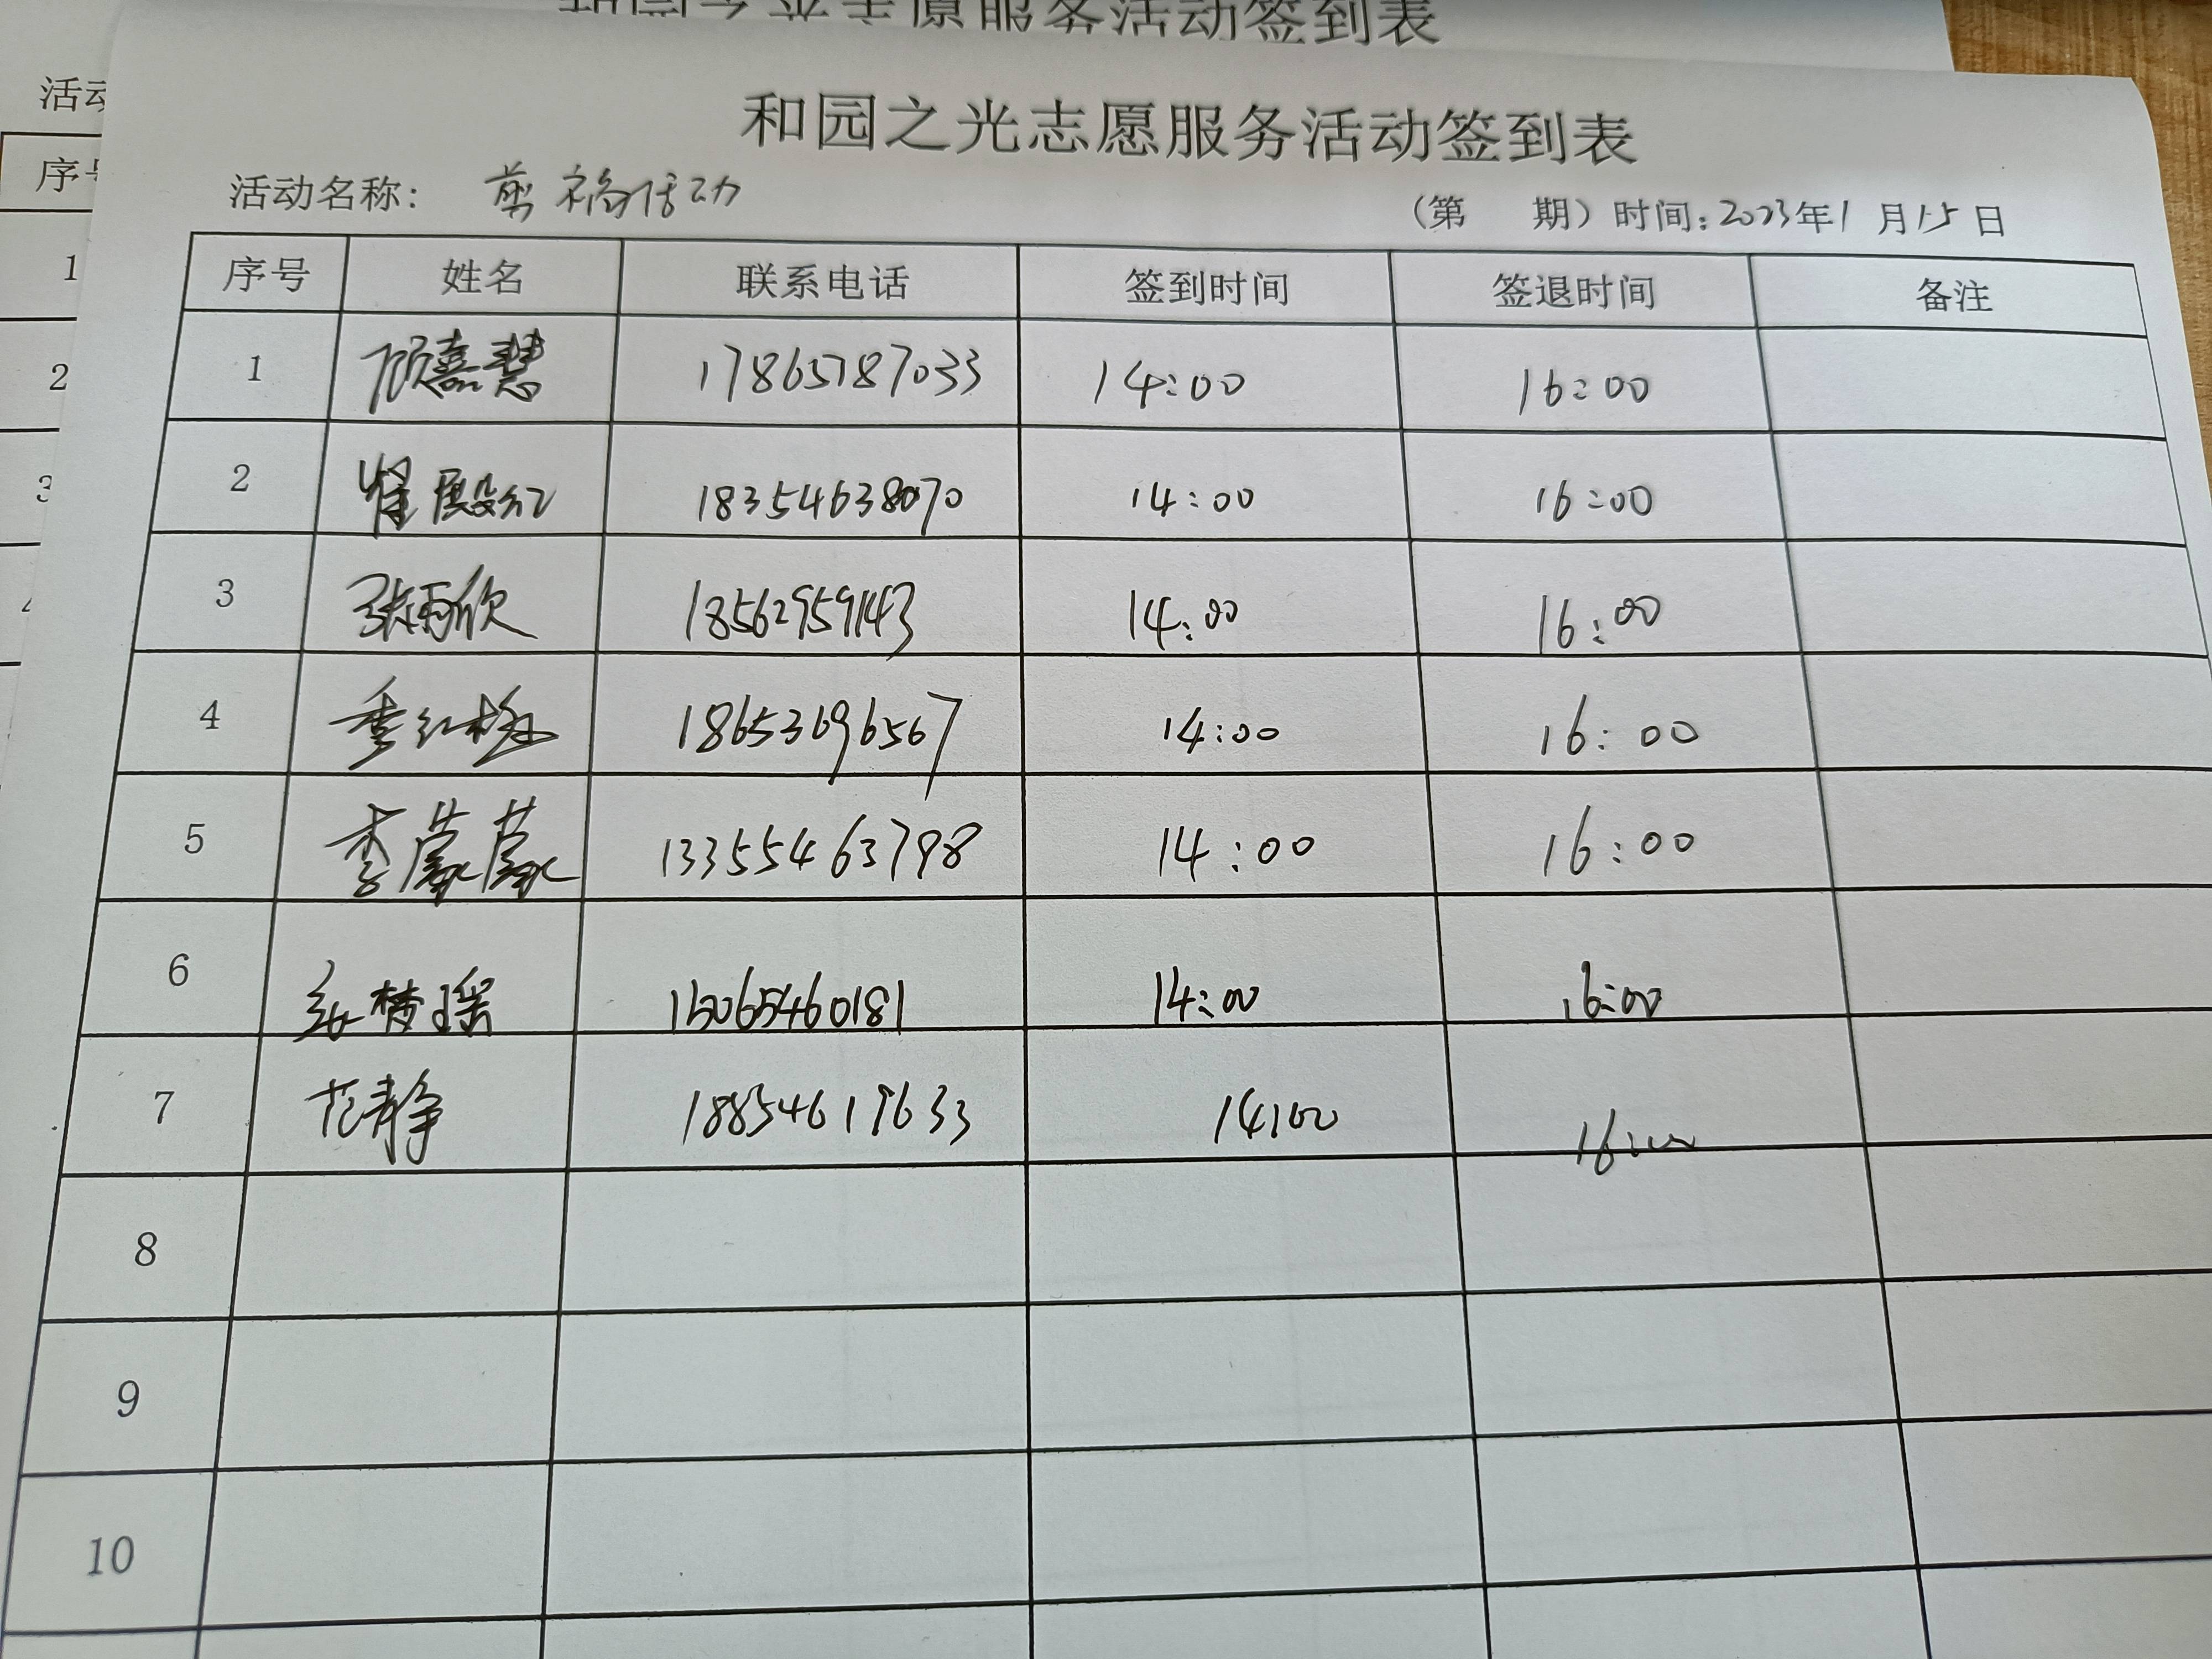 志愿服务活动签到表
活动
序号
1
2
3
和园之光志愿服务活动签到表
活动名称： 剪福活动
（第 期）时间：2023年1月15日
序号 姓名 联系电话 签到时间 签退时间 备注
1 顾嘉慧 17865787033 14:00 16:00
2 18354638070 14:00 16:00
3 张雨欣 18562959143 14:00 16:00
4 季红梅 18653696567 14:00 16:00
5 李蒙蒙 13355463798 14:00 16:00
6 梦瑶 15065460181 14:00 16:00
7 范静 18854619633 14:00 16:00
8
9
10